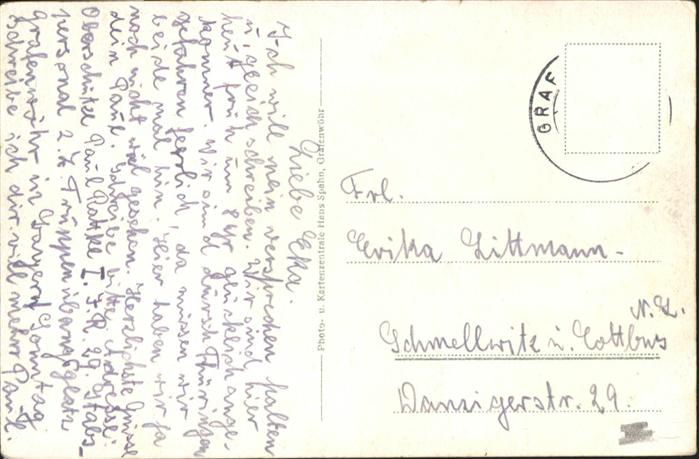 Liebe Eka.
Ich will mein versprechen halten
u. gleich schreiben. Wir sind hier
heut früh um 8 Uhr glücklich ange-
kommen. Wir sind durch Thüringen
gefahren herrlich, da müssen wir
beide mal hin. Hier haben wir ja
noch nicht viel gesehen. Herzlichste Grüsse
dein Paul. Schreibe bitte Adresse:
Oberschütze Paul I. J. R. 29 Stabs-
personal z. Z. Truppenübungsplatz
Grafenwöhr in Bayern Sonntag
schreibe ich dir viel mehr Paul
Photo- u. Kartenzentrale Hans Spahn, Grafenwöhr
GRAF
Frl.
Erika Littmann-
Schmellwitz ü. Cottbus
N. L.
Danzigerstr. 29.